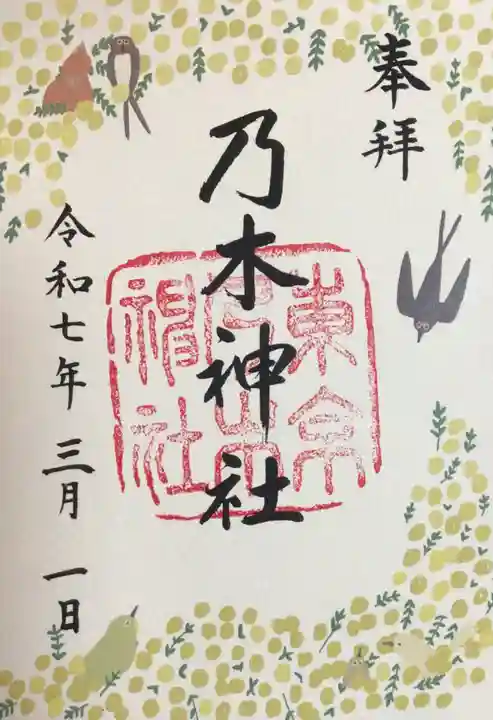 奉拝
乃木神社
東京
乃木
神社
令和七年 三月 一日